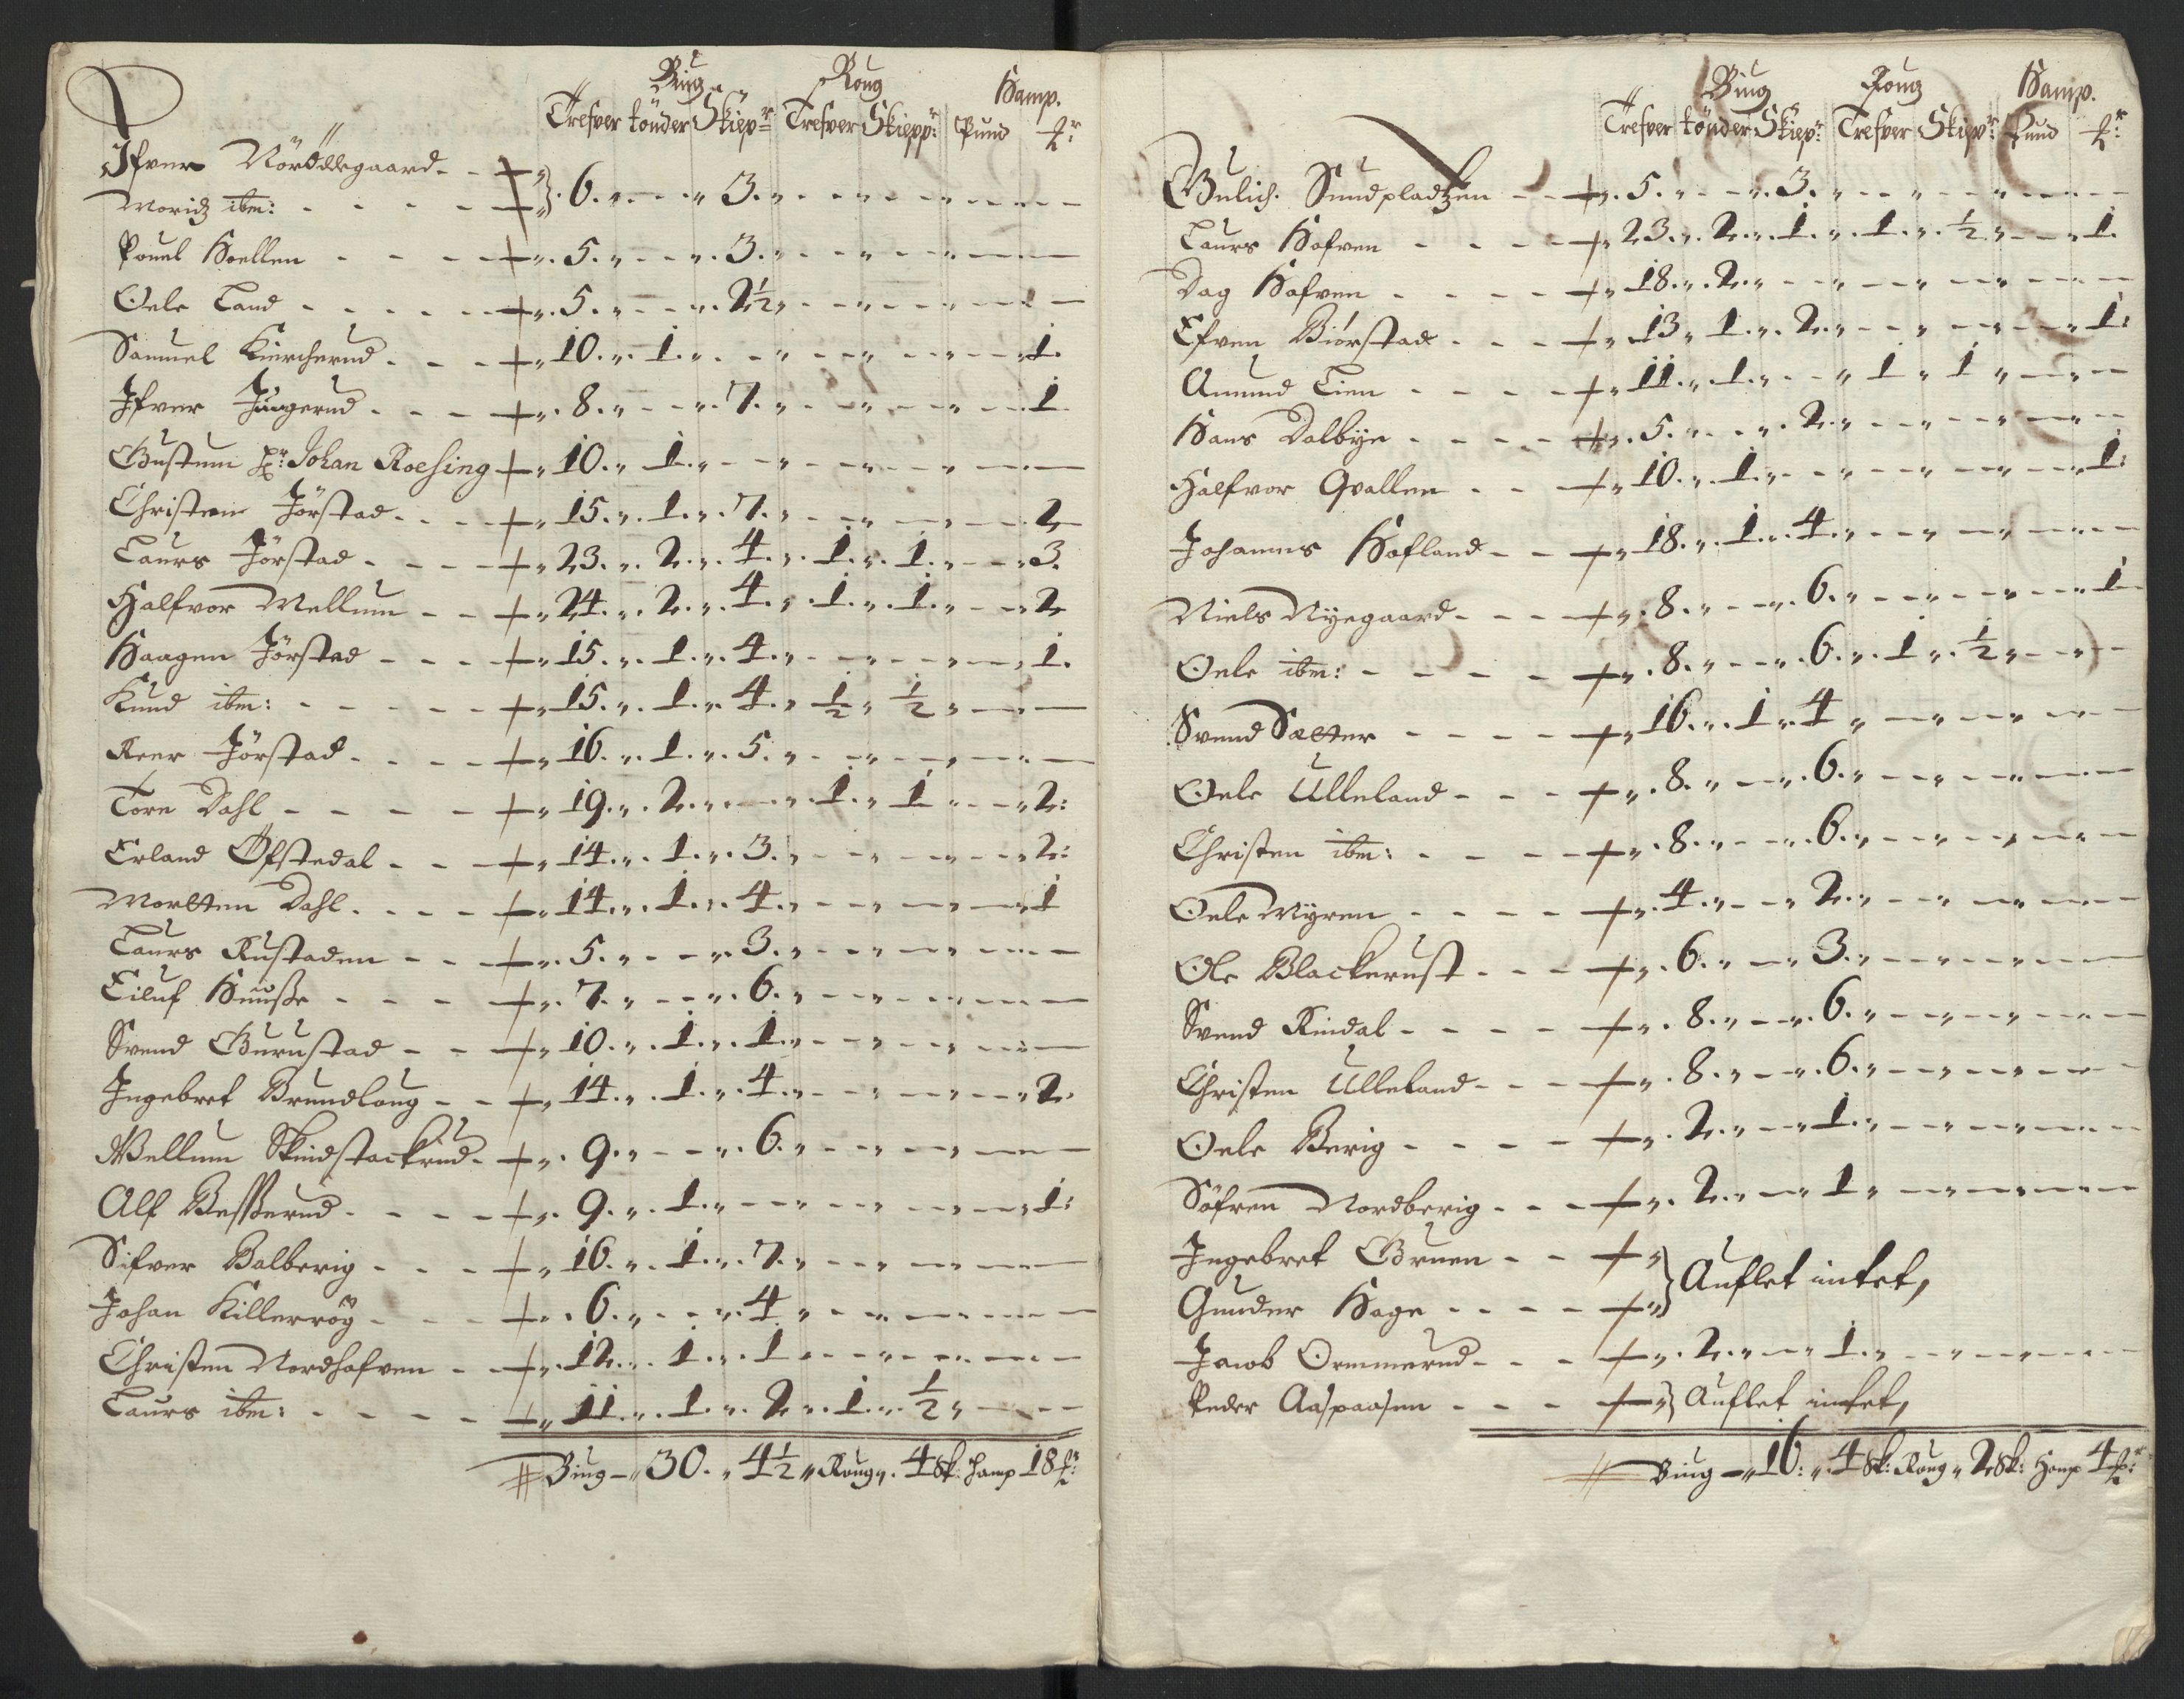 Biug Roug Hamp.
Trefver tönder Skiepr Trefver Skiepp: Pund
Ifver Nörddegaard
Moridz ibm: 6. 3.
Pouel Hoellen 5. 3.
Oele Land 5. 2½
Samuel Kiercherud 10. 1. 1.
Ifver Jungerud 8. 7. 1
Gustum Johan Roesing 10. 1.
Christen Jörstad 15. 1. 7. 2
Laurs Jörstad 23. 2. 4. 1. 1. 3.
Halfvor Mellum 24. 2. 4. 1. 1. 2
Haagen Jörsted 15. 1. 4. 1.
Knud ibm: 15. 1. 4. ½ ½
Reer Jörstad 16. 1. 5.
Tore Dahl 19. 2. 1. 1 2:
Erland Öfstedal 14. 1. 3. 2:
Mortten Dahl 14. 1. 4. 1
Laurs Rustaden 5. 3.
Eiluf Huusse 7. 6.
Svend Gurustad 10. 1. 1.
Ingebret Brundlaug 14. 1. 4. 2.
Mellum Skindstackrud 9. 6.
Alf Besserud 9. 1. 1:
Sifver Balberig 16. 1. 7.
Johan Killerrög 6. 4
Christen Nordhafven 12. 1. 1
Laurs ibm: 11. 1. 2. 1. ½
Biug 30. 4½ Roug 4 Sk: Hamp 18
Biug Roug Hamp.
Trefver tönder Skiepr: Trefver Skipr: Pund
Gulich. Sundpladtzen 5. 3.
Laurs Hafven 23. 2. 1. 1. ½ 1.
Dag Hafven 18. 2.
Efven Biörstad 13 1. 2. 1:
Amund Lien 11. 1. 1 1
Hans Dalbye 5. 2.
Halfvor Qvallen 10. 1. 1:
Johannes Hofland 18. 1. 4.
Niels Nyegaard 8. 6. 1
Oele ibm: 8. 6. 1 ½
Svend Sætter 16. 1. 4
Oele Ulleland 8. 6.
Christen ibm: 8. 6.
Oele Myren 4. 2.
Ole Blackerust 6. 3.
Svend Rindal 8. 6.
Christen Ulleland 8. 6.
Oele Berig 2. 1.
Söfren Nordberig 2. 1
Ingebret Gruen
Gunder Hage Auflet intet,
Jacob Ormmerud 2. 1.
Peder Aaspaasen Auflet intet,
Biug 16: 4 Sk: Roug 2 Sk: Hamp 4